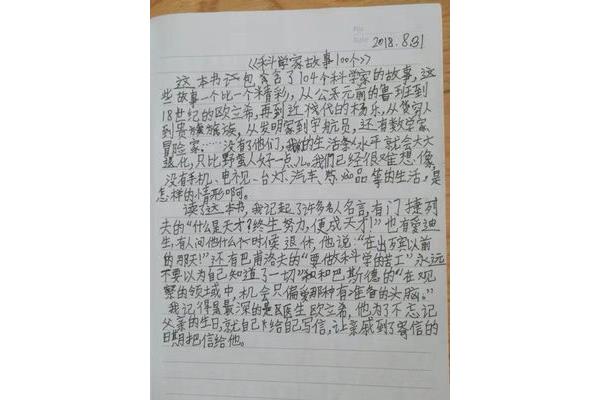 2018.8.31
《科学家故事100个》
这本书记包含了104个科学家的故事，这
些故事一个比一个精彩，从公元前的鲁班到
18世纪的欧立希，再到近代的杨乐，从贫穷人
到贵族，从发明家到宇航员，还有数学家
冒险家……没有了他们，我们的生活水平就会大大
退化，只比野蛮人好一点儿。我们已经很难想像，
没有手机、电视、台灯、汽车、药品等的生活，是
怎样的情形啊。
读了这本书，我记起了许多名人名言，有门捷列
夫的“什么是天才？终生努力，便成天才！”也有爱迪
生，有人问他什么时候退休，他说：“在出殡以前
的那天！”还有巴甫洛夫的“要做科学的苦工”永远
不要以为自己知道了一切”和巴斯德的“在观
察的领域中，机会只偏爱那种有准备的头脑。”
我记得最深的是医生欧立希，他为了不忘记
父亲的生日，就自己给自己写信，让亲感到了寄信的
日期把信给他。